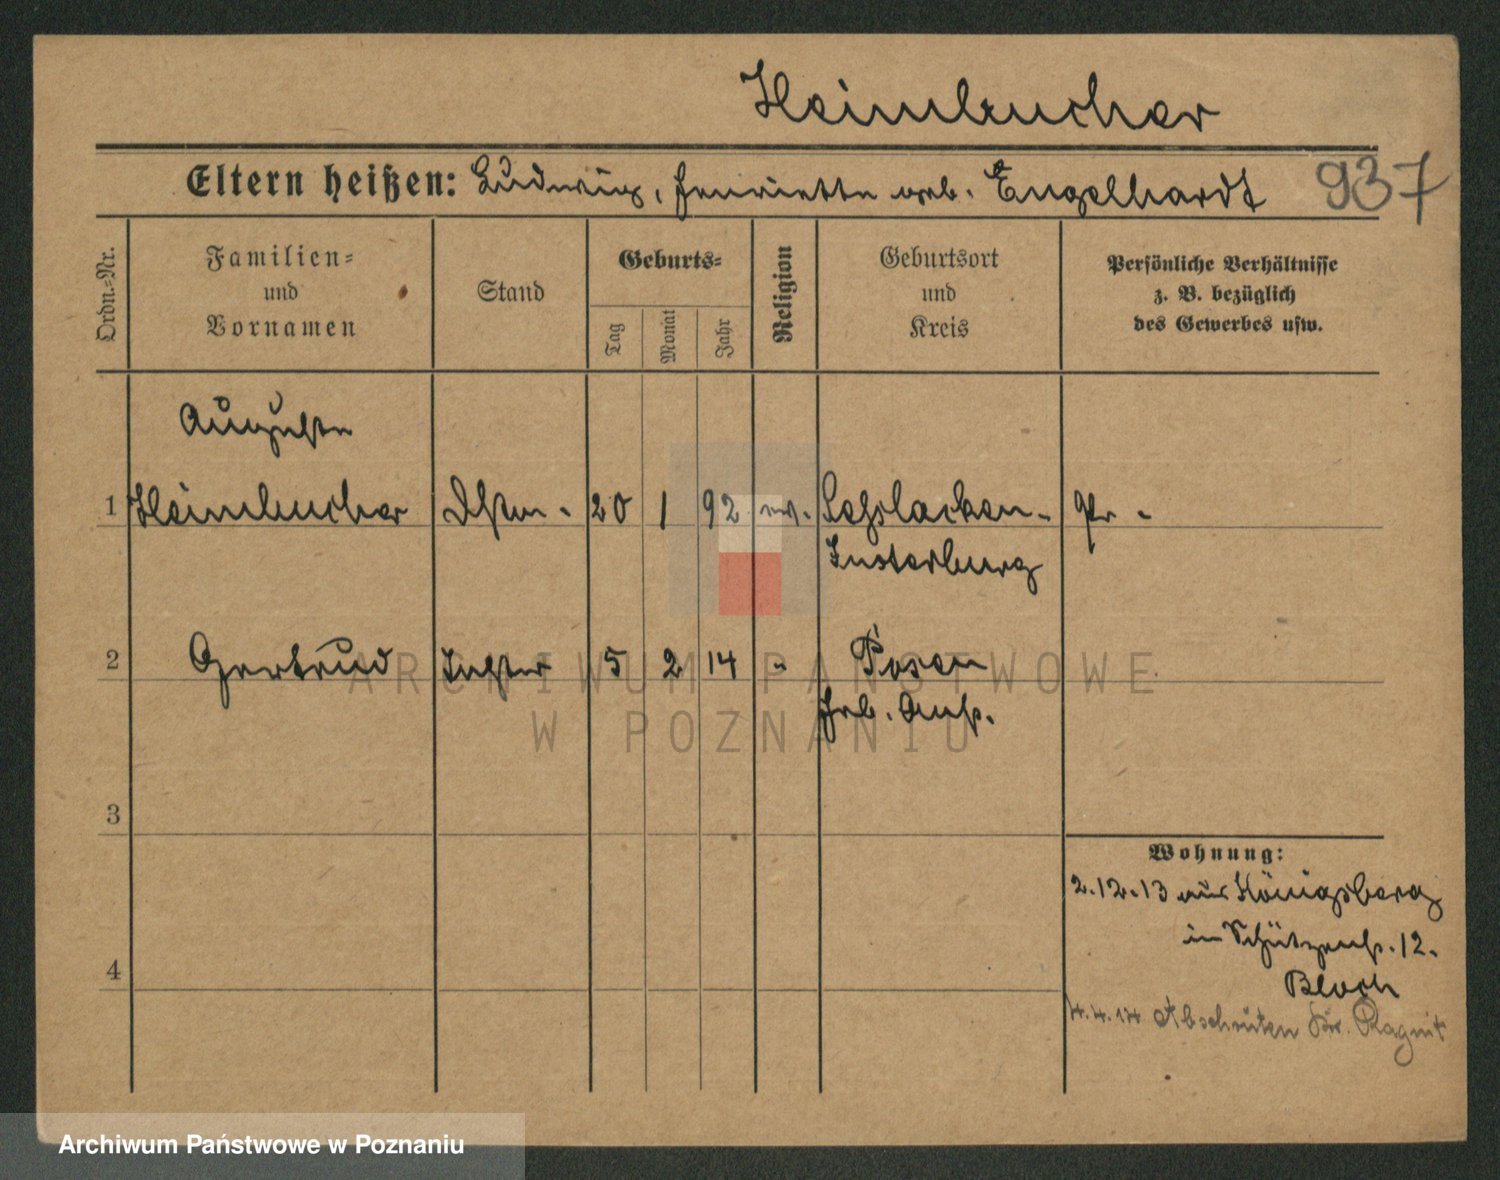 Heimbucher
Eltern heißen: Ludwig, Henriette geb. Engelhardt
937
Ordn.=Nr.
Familien=
und
Vornamen
Stand
Geburts=
Tag
Monat
Jahr
Religion
Geburtsort
und
Kreis
Persönliche Verhältnisse
z. B. bezüglich
des Gewerbes usw.
Auguste
1 Heimbucher 20 1 92 ev. Pr.
Insterburg
2 Gertrud Tochter 5 2 14 " Posen
3
4
Wohnung:
2.12.13 aus Königsberg
in Schützenstr. 12.
Bloch
4.4.14 Abschruten Kr. Ragnit
ARCHIWUM PAŃSTWOWE
W POZNANIU
Archiwum Państwowe w Poznaniu